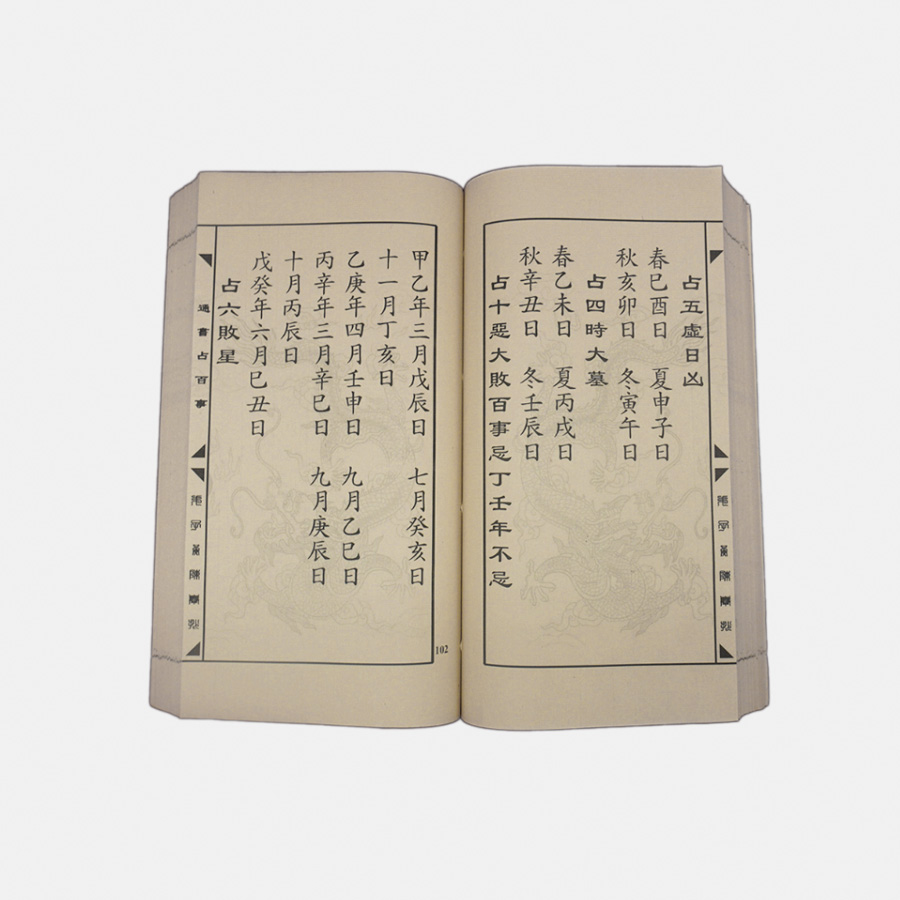 占五虛日凶
春巳酉日　夏申子日
秋亥卯日　冬寅午日
占四時大墓
春乙未日　夏丙戌日
秋辛丑日　冬壬辰日
占十惡大敗百事忌丁壬年不忌
甲乙年三月戊辰日　七月癸亥日
十一月丁亥日
乙庚年四月壬申日　九月乙巳日
丙辛年三月辛巳日　九月庚辰日
十月丙辰日
戊癸年六月巳丑日
占六敗星
通書占百事
102